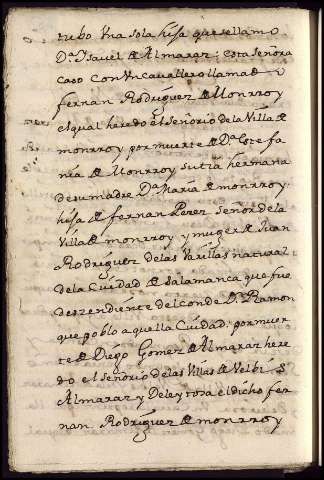 tubo Vna sola hija que se llamo
Dª Ysavel de Almaraz; esta señora
caso con Vn cavallero llamado
fernan Rodriguez de Monrroy
el qual heredo el señorio de la Villa de
monrroy por muerte de Dª Estefa
nia de Monrroy su tia hermana
de su madre Dª Maria de monrroy
hija de fernan Perez señor de la
Villa de monrroy y muger de Juan
Rodriguez de las Varillas natural
de la Ciudad de Salamanca que fue
deszendiente del conde D. Ramon
que poblo aquella Ciudad; por muer
te de Diego Gomez de Almaraz here
do el señorio de las Villas de Velbis
Almaraz y Deleytosa el dicho fer
nan Rodriguez de monrroy